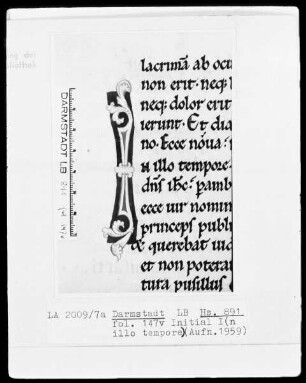 lacrimā ab ocu
non erit· neq;
neq; dolor erit
ierunt· Et dix
no· Ecce noua·
N illo tempore·
dn̄s ihc̄· pamb
ecce uir nomin
princeps publi
& querebat uid
et non potera
tura pusillus
DARMSTADT LB
LA 2009/7a Darmstadt LB Hs. 891
fol. 147v Initial I(n
illo tempore)(Aufn.1959)